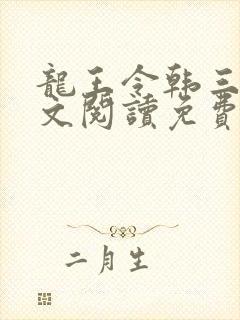 龍王令韩三
文閱讀免費
二月生